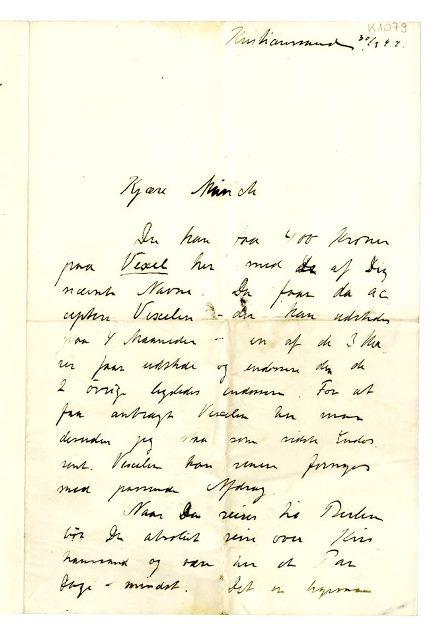 K1079
Kristianssand 30/3 97.
Kjære Munch
Du kan faa 400 Kroner
paa Vexel her med de af Dig
nævnte Navne. Du faar da ac
ceptere Vexelen – den kan udstedes
paa 4 Maaneder – en af de 3 Her
rer faar udstede og endossere den de
2 övrige ligeledes endossere. For at
faa anbragt Vexelen her maa
desuden jeg staa som sidste Endos
sent. Vexelen kan senere fornyes
med passende Afdrag.
Naar Du reiser fra Berlin
bör Du absolut reise over Kris
tianssand og være her et Par
Dage – mindst. Det er